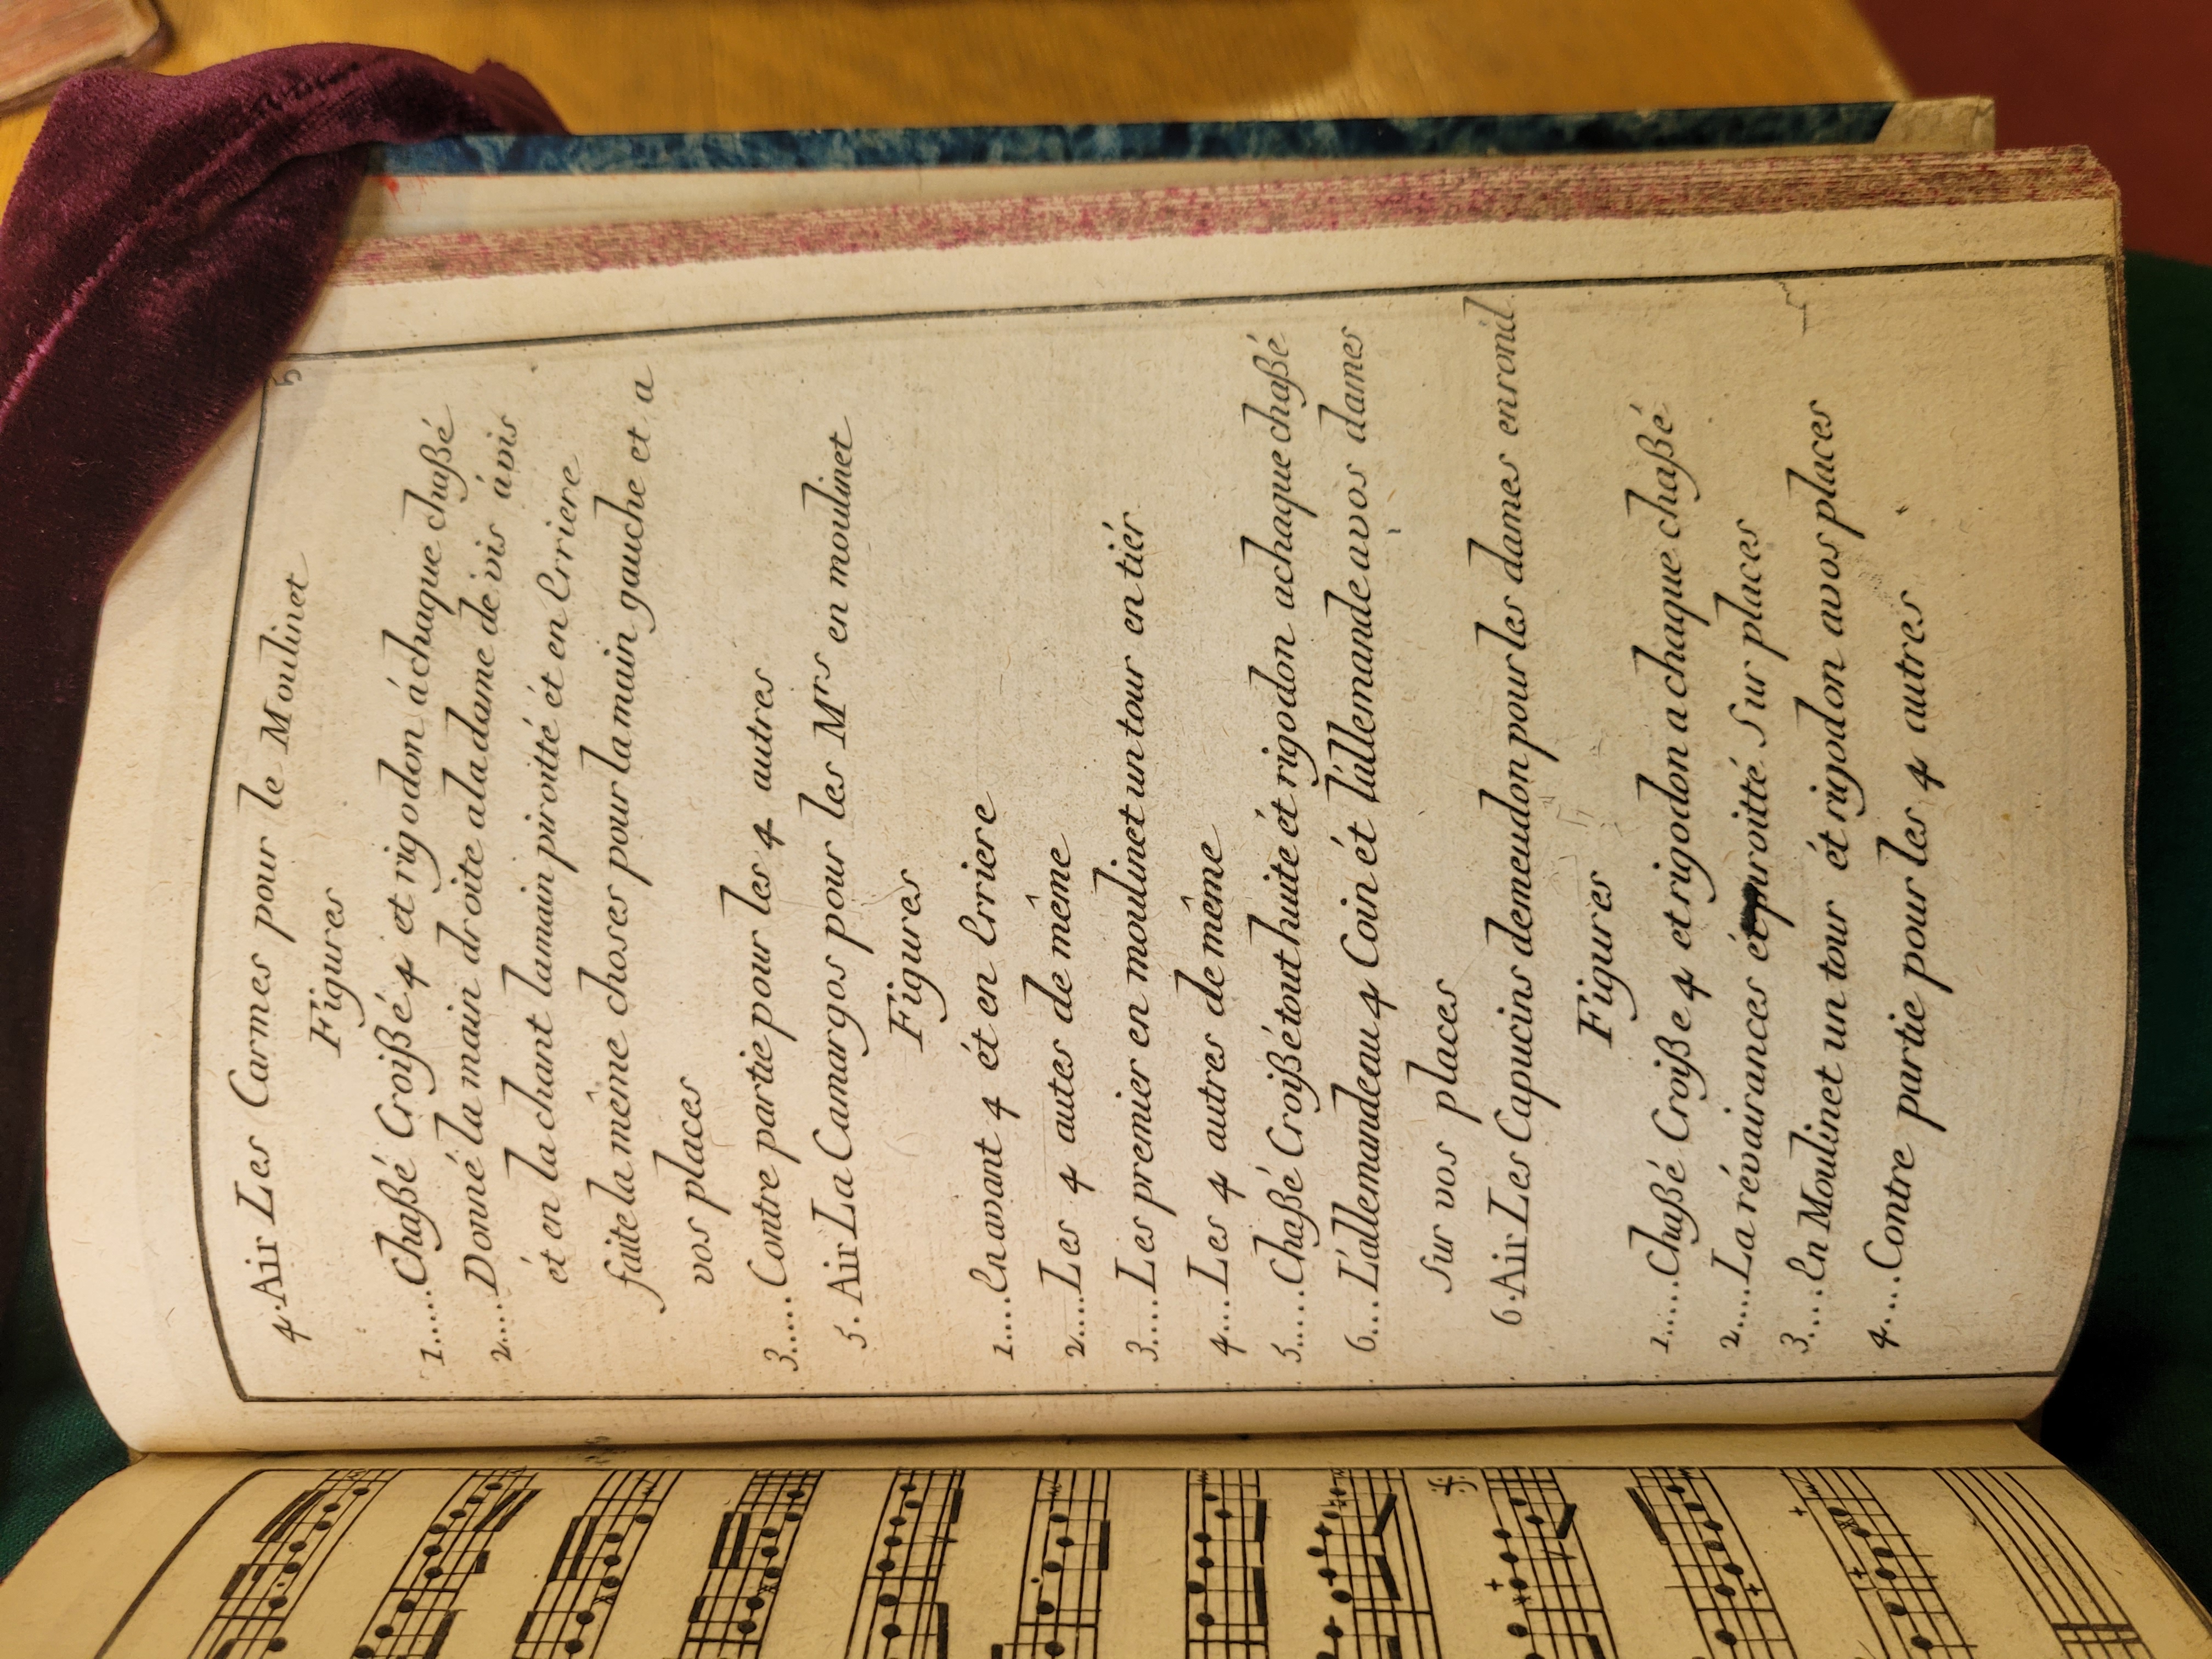 5
4. Air Les Carmes pour le Moulinet
Figures
1.....Chaßé Croißé 4 et rigodon áchaque chaßé
2....Donné la main droite aladame de vis ávis
ét en la chant lamain piroitté ét en Erriere
faite la même choses pour la main gauche et a
vos places
3.....Contre partie pour les 4 autres
5. Air La Camargos pour les Mrs en moulinet
Figures
1....En avant 4 ét en Erriere
2....Les 4 autes de même
3....Les premier en moulinet un tour en tiér
4....Les 4 autres de même
5.....Chaßé Croißé tout huite ét rigodon achaque chaßé
6...L'allemandeau 4 Coin ét l'allemande avos dames
Sur vos places
6. Air Les Capucins demeudon pour les dames enrond
Figures
1.....Chaßé Croiße 4 et rigodon a chaque chaßé
2....La révairances ét piroitté Sur places
3....En Moulinet un tour ét rigodon avos places
4....Contre partie pour les 4 autres